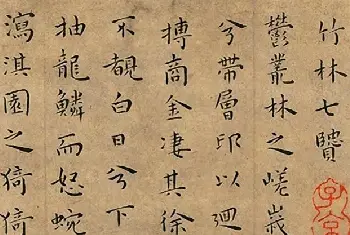 竹林七賢
鬱叢林之嵯峩
兮帶層邱以迴
搏商金凄其徐
不覩白日兮下
抽龍鱗而怒蜿
瀉淇園之猗猗
子京